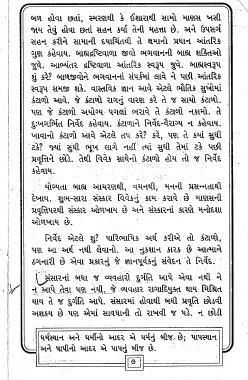 બળ હોવા છતાં, સ્મરણથી કે ઈશારાથી સામો માણસ ખસી
જાય તેવું હોવા છતાં સહન કર્યા તેની મહત્તા છે. અને ઉપસર્ગ
સહન કરીને સામાની દયાચિંતવી તે ક્ષમાનો પ્રધાન આંતરિક
ગુણ કહેવાય. બાહ્યદૃષ્ટિવાળા જીવો ભગવાનની બાહ્ય શક્તિઓ
જુવે. આભ્યંતર દૃષ્ટિવાળા આંતરિક સ્વરૂપ જુવે. બાહ્યસ્વરૂપ
શું કરે? બાળજીવોને ભગવાનનાં સંપર્કમાં લાવે ને પછી આંતરિક
સ્વરૂપ સમજી શકે. વાસ્તવિક જ્ઞાન આવે એટલે ભૌતિક સુખોમાં
કંટાળો આવે. જે કંટાળો રાગનું કારણ કરે તે જ સામો કંટાળો.
પણ જે કંટાળો અયોગ્ય પગલાં ભરાવે તે કંટાળો નકામો. તે
દુઃખગર્ભિત નિર્વેદ કહેવાય. કંટાળાને નિર્વેદ-વૈરાગ્ય ન કહેવાય.
ખાવાનો કંટાળો આવે એટલે તપ કરે? કરે, પણ તે ક્યાં સુધી
ટકે? જ્યાં સુધી ભૂખ લાગે નહીં ત્યાં સુધી તેમાં ટકે પછી
પ્રવૃત્તિને છોડે. તેથી વિવેક સાથેનો કંટાળો હોય તો જ નિર્વેદ
કહેવાય.
યોગ્યતા બાહ્ય આચરણથી, વચનથી, મનની પ્રસન્નતાથી
દેખાય. શુભ-સારા સંસ્કાર વિવેકનું કામ કરાવે છે માણસની
પ્રવૃત્તિપરથી સંસ્કાર ઓળખાય છે અને સંસ્કારનાં કારણે મનોદશા
ઓળખાય છે.
નિર્વેદ એટલે શું? પારિભાષિક અર્થ કરીએ તો કંટાળો,
પણ આ અર્થ નથી લેવાનો. આ નુકશાન કારક છે આત્માને
ઠગનારી છે એવા પ્રકારનું જે જ્ઞાનપૂર્વકનું સંવેદન તે નિર્વેદ.
સંસારનાં બધા જ વ્યવહારો દુર્ગતિ આપે એવા નથી ને
ન આપે તેવા પણ નથી. જે વ્યવહાર રાગાદિયુક્ત થાય મિશ્રિત
થાય તે જ દુર્ગતિ આપે. સંસારમાં હોવાથી બધી પ્રવૃત્તિ છોડવી
અશક્ય છે પણ એમાં સાવધાની તો રાખવી જ પડે. ન છોડી
ધર્મસ્થાન અને ધર્મીનો આદર એ ધર્મનું બીજ છે; પાપસ્થાન
અને પાપીનો આદર એ પાપનું બીજ છે.